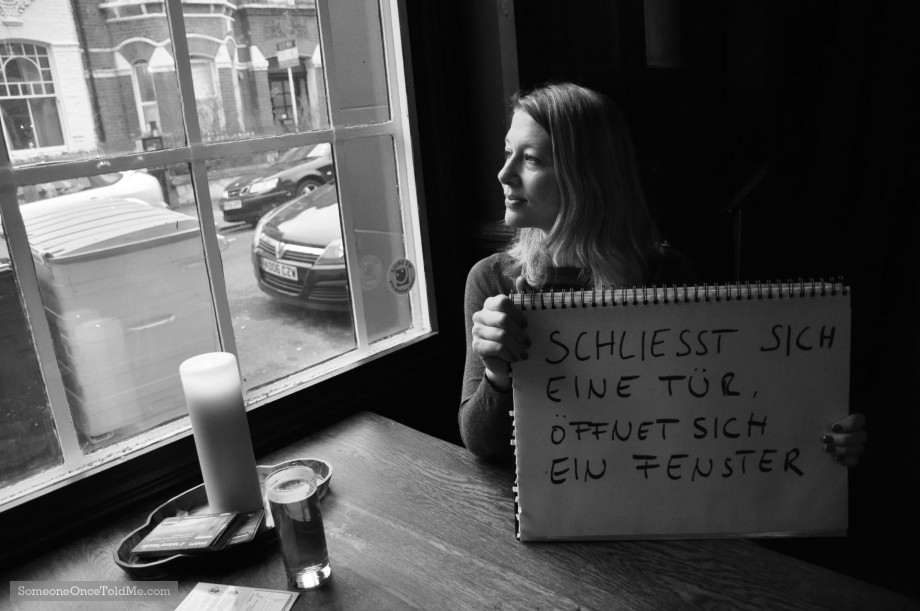 SCHLIESST SICH
EINE TÜR,
ÖFFNET SICH
EIN FENSTER
SomeoneOnceToldMe.com